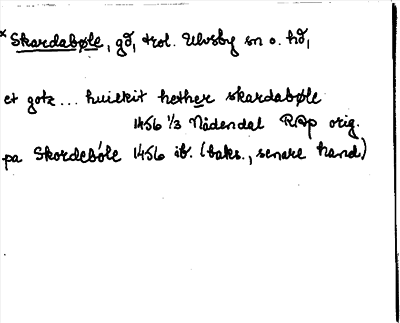 × Skardabøle, gd, trol. Ulvsby sn o. hd,
et gotz ... huilkit hether skardabøle
1456 1/3 Nådendal RAp orig.
pa Skordebóle 1456 ib. (baks., senare hand)